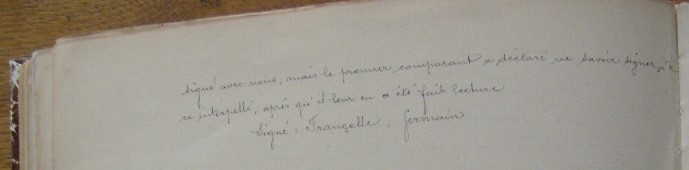 signé avec nous, mais le premier comparant a déclaré ne savoir signer, de
ce interpellé, après qu'il leur en a été fait lecture
Signé : Françelle, Germain